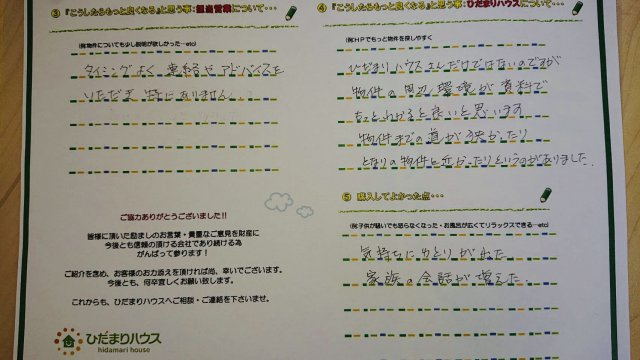 ③『こうしたらもっと良くなる』と思う事：担当営業について・・・
(例:物件についてもう少し説明が欲しかった…etc)
タイミングよく連絡やアドバイスを
いただき 特にありません。
ご協力ありがとうございました!!
皆様に頂いた励ましのお言葉・貴重なご意見を財産に
今後とも信頼の頂ける会社であり続ける為
がんばって参ります！
ご紹介を含め、お客様のお力添えを頂ければ尚、幸いでございます。
今後とも、何卒宜しくお願い致します。
これからも、ひだまりハウスへご相談・ご連絡を下さいませ。
ひだまりハウス
hidamari house
④『こうしたらもっと良くなる』と思う事：ひだまりハウスについて・・・
(例:HPでもっと物件を探しやすく
ひだまりハウスさんだけではないのですが
物件の周辺環境が資料で
もっとわかると良いと思います。
物件までの道が狭かったり
となりの物件に近かったりというのがありました。
⑤ 購入してよかった点・・・
(例:子供が騒いでも怒らなくなった・お風呂が広くてリラックスできる…etc)
気持ちにゆとりがでた
家族の会話が増えた。